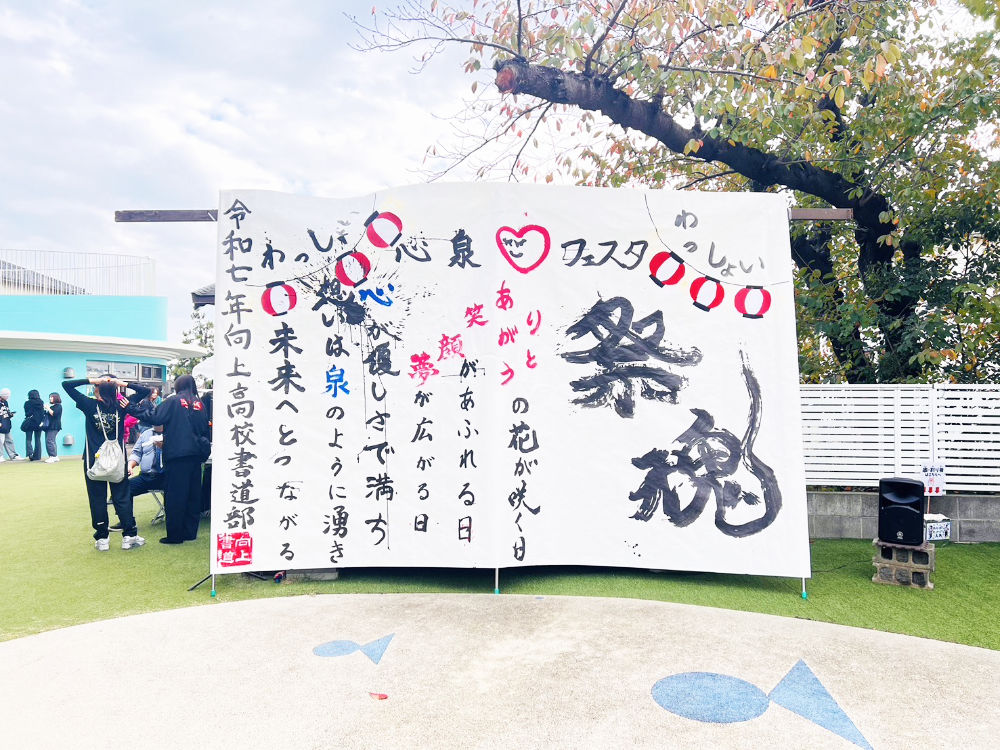 わっしょい
心泉
フェスタ
わっしょい
祭魂
ありがとうの花が咲く日
笑顔があふれる日
夢が広がる日
心が優しさで満ち
想いは泉のように湧き
未来へとつながる
令和七年向上高校書道部
向上書道